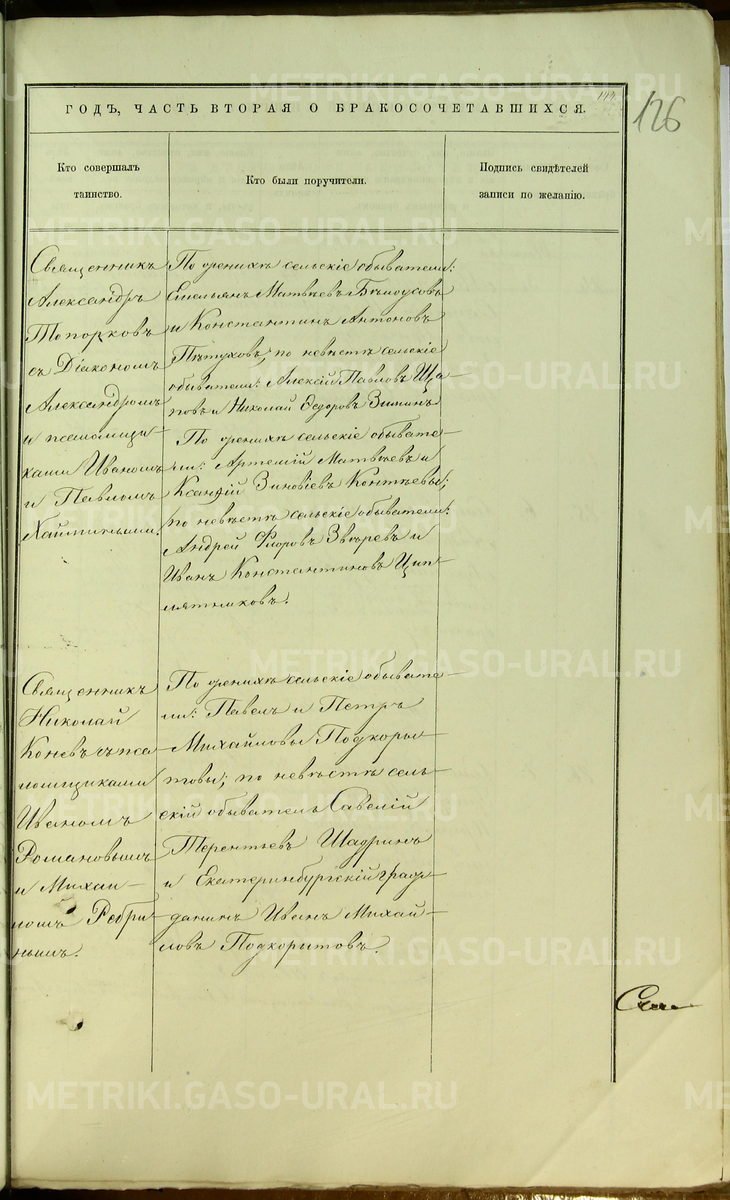 ГОДЪ, ЧАСТЬ ВТОРАЯ О БРАКОСОЧЕТАВШИХСЯ.
126
Кто совершалъ
таинство.
Кто были поручители.
Подпись свидѣтелей
записи по желанію.
Священникъ
Александръ
Топорковъ
съ Діакономъ
Александромъ
и псаломщи-
ками Иваномъ
и Павломъ
По женихѣ сельскіе обыватели:
Емельянъ Матвѣевъ Бѣлоусовъ
и Константинъ Антоновъ
Пѣтуховъ; по невѣстѣ сельскіе
обыватели: Алексѣй Павловъ Ща-
повъ и Николай Ѳедоровъ Зиминъ.
По женихѣ сельскіе обывате-
ли: Артемій Матвѣевъ и
Зиновіевъ Контѣевы;
по невѣстѣ сельскіе обыватели:
Андрей Флоровъ Звѣревъ и
Иванъ Константиновъ Цип-
лятниковъ.
Священникъ
Николай
Коневъ съ пса-
ломщиками
Иваномъ
Романовымъ
и Михаи-
ломъ Ребри-
нымъ.
По женихѣ сельскіе обывате-
ли: Павелъ и Петръ
Михайловы Подкоры-
товы; по невѣстѣ сель-
скій обыватель Савелій
Терентьевъ Шадринъ
и Екатеринбургскій граж-
данинъ Иванъ Михай-
ловъ Подкорытовъ.
METRIKI.GASO-URAL.RU